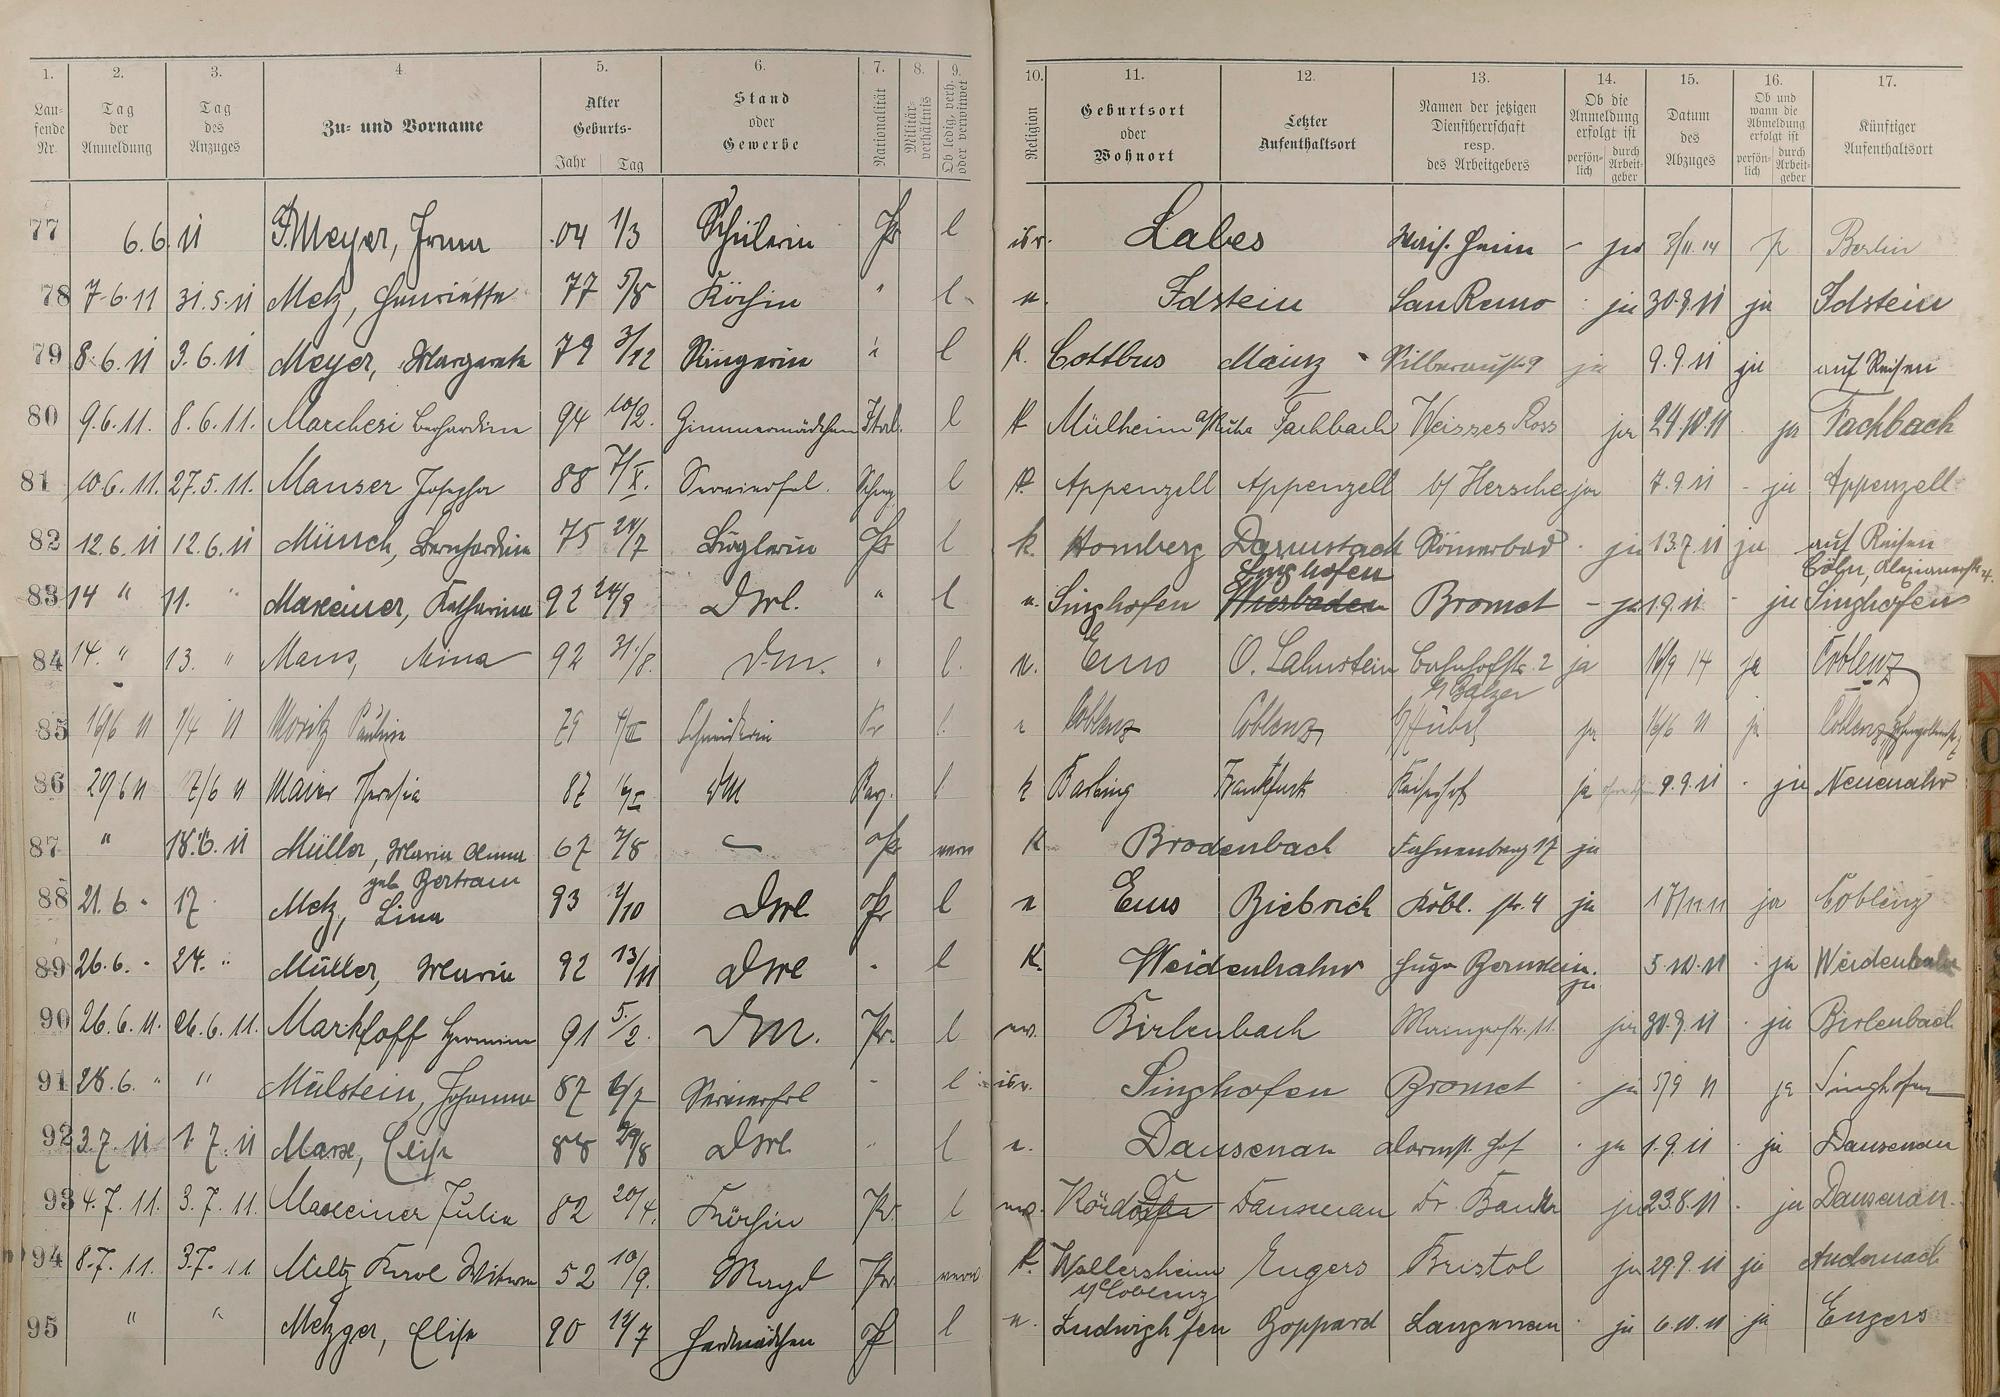 1. 2. 3. 4. 5. 6. 7. 8. 9. 10. 11. 12. 13. 14. 15. 16. 17.
Laufende Nr.
Tag der Anmeldung
Tag des Anzuges
Zu- und Vorname
Alter Geburts- Jahr Tag
Stand oder Gewerbe
Nationalität
Militärverhältnis
Ob ledig, verh. oder verwitwet
Religion
Geburtsort oder Wohnort
Letzter Aufenthaltsort
Namen der jetzigen Dienstherrschaft resp. des Arbeitgebers
Ob die Anmeldung erfolgt ist persönlich durch Arbeitgeber
Datum des Abzuges
Ob und wann die Abmeldung erfolgt ist persönlich durch Arbeitgeber
Künftiger Aufenthaltsort
77 6.6.11 Meyer, Irma 04 1/3 Schülerin Pr l isr. Labes - ja Berlin
78 7.6.11 31.5.11 Metz, Henriette 77 5/8 Köchin " l Idstein San Remo ja 30.9.11 ja Idstein
79 8.6.11 3.6.11 Meyer, Margarete 79 3/12 Sängerin " l K. Cottbus Mainz ja 9.9.11 ja auf Reisen
80 9.6.11. 8.6.11. Marchesi 94 10/2. Zimmermädchen Ital. l K Mülheim a/Ruhr Fachbach Weisses Ross ja 24.10.11 ja Fachbach
81 10.6.11. 27.5.11. Manser Josepha 88 7/X. Servierfrl. l K. Appenzell Appenzell b/ Hersche ja 7.9.11 - ja Appenzell
82 12.6.11 12.6.11 Münch, Bernhardine 75 24/7 Büglerin Pr l k. Homberg Darmstadt Römerbad ja 13.7.11 ja auf Reisen
Cöln,
83 14 " 11. " Maxeiner, Katharina 92 24/9 DM. " l Singhofen Singhofen Wiesbaden Bromet - ja 1.9.11 - ja Singhofen
84 14. " 13. " Maus, Mina 92 31./8. DM. " l. Ems O. Lahnstein Bahnhofstr. 2 ja 14 ja Coblenz
b/ Balzer
85 16/6 11 1/4 11 Moritz Pauline 79 Schneiderin Pr l Coblenz Coblenz b/ Hübel ja 16/6 11 ja Coblenz,
86 20/6 11 17/6 11 Maier Theresia 87 DM Bay. l k Barbing Frankfurt ja 9.9.11 - ja Neuenahr
87 " 18.6.11 Müller, Maria Anna 67 7/8 Pr verw K Brodenbach Fahnenberg 17 ja
geb Bertram
88 21.6. " 17 Metz, Lina 93 /10 DM Pr l Ems Biebrich Kobl. str. 4 ja 17/11.11 ja Coblenz
89 26.6. " 24. " Müller, Maria 92 13/11 DM " l K. Weidenhahn Hugo Bernstein. ja 5.10.11 - ja Weidenhahn
90 26.6.11. 26.6.11. Markloff Hermine 91 5./2. DM. Pr. l Birlenbach ja 30.9.11 - ja Birlenbach
91 28.6. " " Mülstein, Johanna 87 /7 Servierfrl " l isr. Singhofen Bromet ja 5/9 11 ja Singhofen
92 3.7.11 1.7.11 Marx, Elise 88 29/8 DM " l Dausenau Darmst. Hof ja 1.9.11 ja Dausenau
93 4.7.11. 3.7.11. Maxeiner Julie 82 20/4. Köchin Pr. l Dausenau ja 23.8.11 - ja Dausenau.
94 8.7.11. 3.7.11 Meltz Karl Witwe 52 10/9. Magd Pr verw k. Wallersheim Engers Bristol ja 29.9.11 ja Andernach
b/ Coblenz
95 " " Metzger, Elise 90 12/7 Herdmädchen Pr l Ludwighafen Boppard Langenau ja 6.10.11 ja Engers